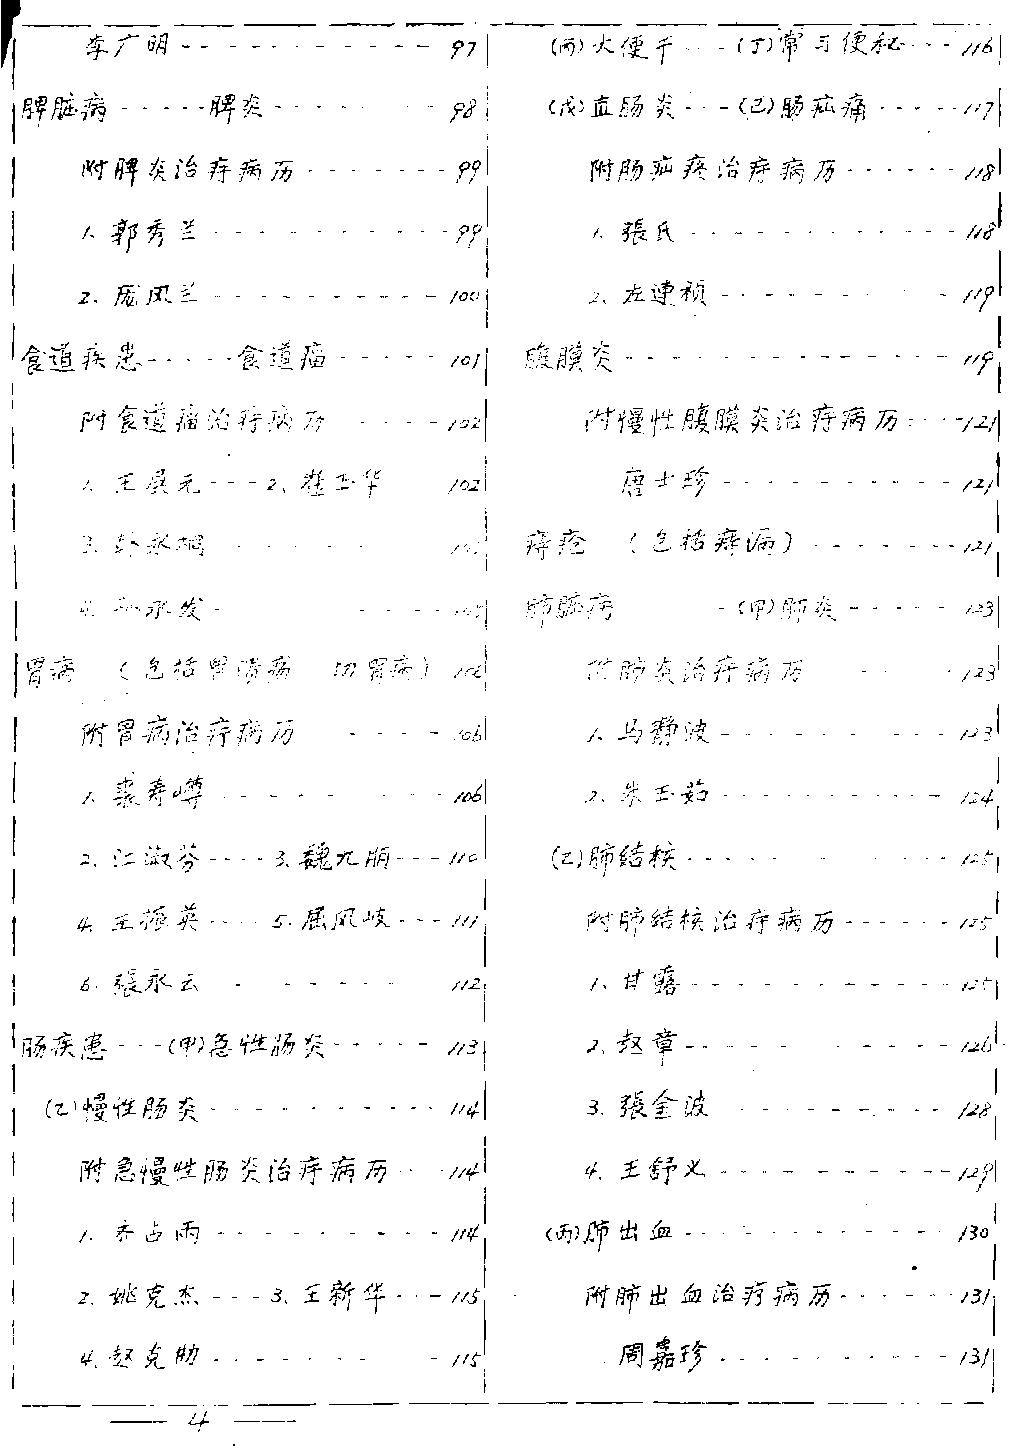 李广明 97
脾脏病 脾炎 98
附脾炎治疗病历 99
1. 郭秀兰 99
2. 庞凤兰 100
食道疾患 食道癌 101
附食道癌治疗病历 102
1. 王展元 2. 崔玉华 102
3. 永
永发
胃病 (包括胃溃病 切胃病)
附胃病治疗病历 106
1. 裘寿嶟 106
2. 江淑芬 3. 魏九顺 110
4. 王振英 5. 屈凤岐 111
6. 張永云 112
肠疾患 (甲)急性肠炎 113
(乙)慢性肠炎 114
附急慢性肠炎治疗病历 114
1. 乔占雨 114
2. 姚克杰 3. 王新华 115
4. 赵克勋 115
4
(丙)大便干 (丁)常习便秘 116
(戊)直肠炎 (己)肠疝痛 117
附肠疝疼治疗病历 118
1. 張氏 118
2. 左連祯 119
腹膜炎 119
附慢性腹膜炎治疗病历 121
唐士珍 121
痔疮 (包括痔漏) 121
肺脏病 (甲)肺炎 123
附肺炎治疗病历 123
1. 马静波 123
2. 朱玉茹 124
(乙)肺结核 125
附肺结核治疗病历 125
1. 甘露 125
2. 赵章 126
3. 張金波 128
4. 王舒义 129
(丙)肺出血 130
附肺出血治疗病历 131
周嘉珍 131